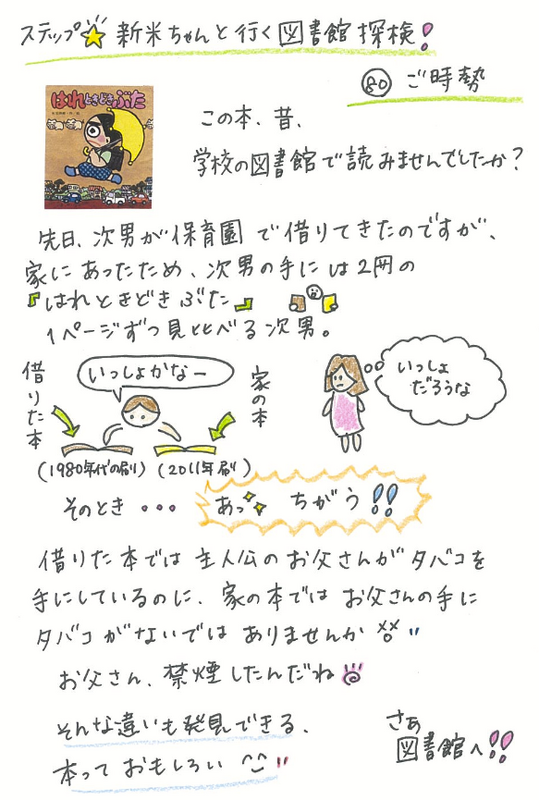 ステップ 新米ちゃんと行く図書館探検!
80 ご時勢
はれときどきぶた
この本、昔、
学校の図書館で読みませんでしたか?
先日、次男が保育園で借りてきたのですが、
家にあったため、次男の手には2冊の
『はれときどきぶた』
1ページずつ見比べる次男。
借りた本
いっしょかなー
家の本
いっしょ
だろうな
(1980年代の刷り) (2011年刷)
そのとき・・・
あっ ちがう!!
借りた本では主人公のお父さんがタバコを
手にしているのに、家の本ではお父さんの手に
タバコがないではありませんか
お父さん、禁煙したんだね
そんな違いも発見できる、
本っておもしろい
さあ
図書館へ!!